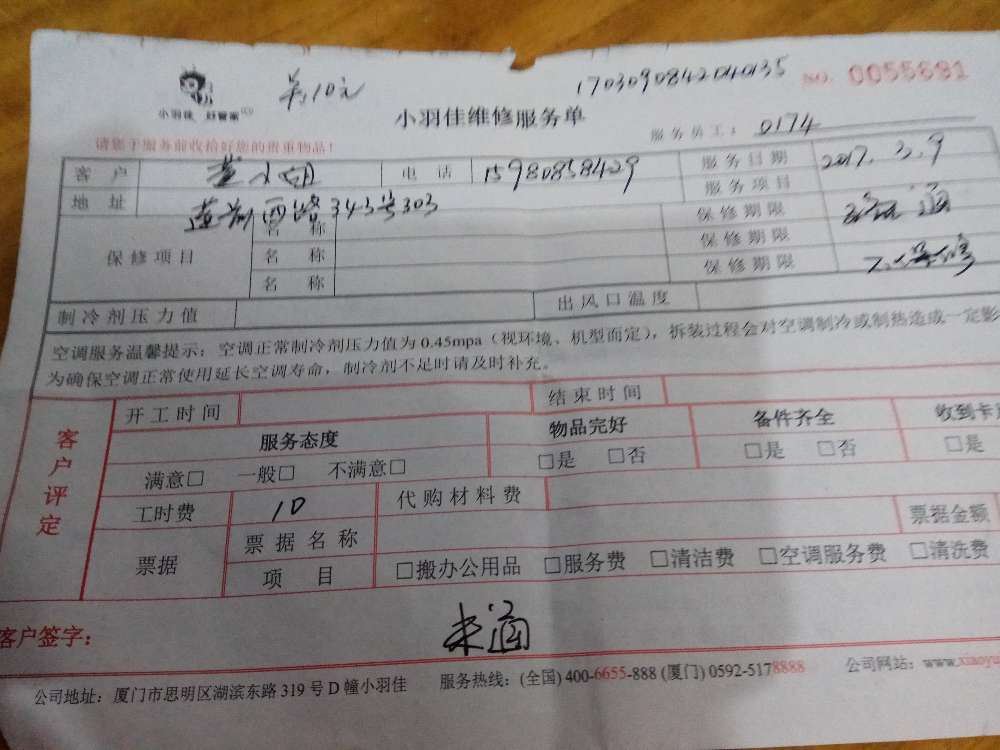 170309084204035
NO. 0055681
小羽佳 好管家
小羽佳维修服务单
请您于服务前收拾好您的贵重物品!
服务员工: 0174
客户 黄小姐 电话 15980858429 服务日期 2017.3.9
地址 莲前西路343号303 服务项目
保修项目 名称 保修期限
名称 保修期限
名称 保修期限 不保修
制冷剂压力值 出风口温度
空调服务温馨提示: 空调正常制冷剂压力值为 0.45mpa (视环境、机型而定), 拆装过程会对空调制冷或制热造成一定影
为确保空调正常使用延长空调寿命, 制冷剂不足时请及时补充。
客户评定
开工时间 结束时间
服务态度 物品完好 备件齐全 收到卡
满意□ 一般□ 不满意□ □是 □否 □是 □否 □是
工时费 10 代购材料费
票据 票据名称 票据金额
项目 □搬办公用品 □服务费 □清洁费 □空调服务费 □清洗费
客户签字: 未通
公司地址: 厦门市思明区湖滨东路 319 号 D 幢小羽佳 服务热线: (全国) 400-6655-888 (厦门) 0592-5178888 公司网站: www.xiaoyu